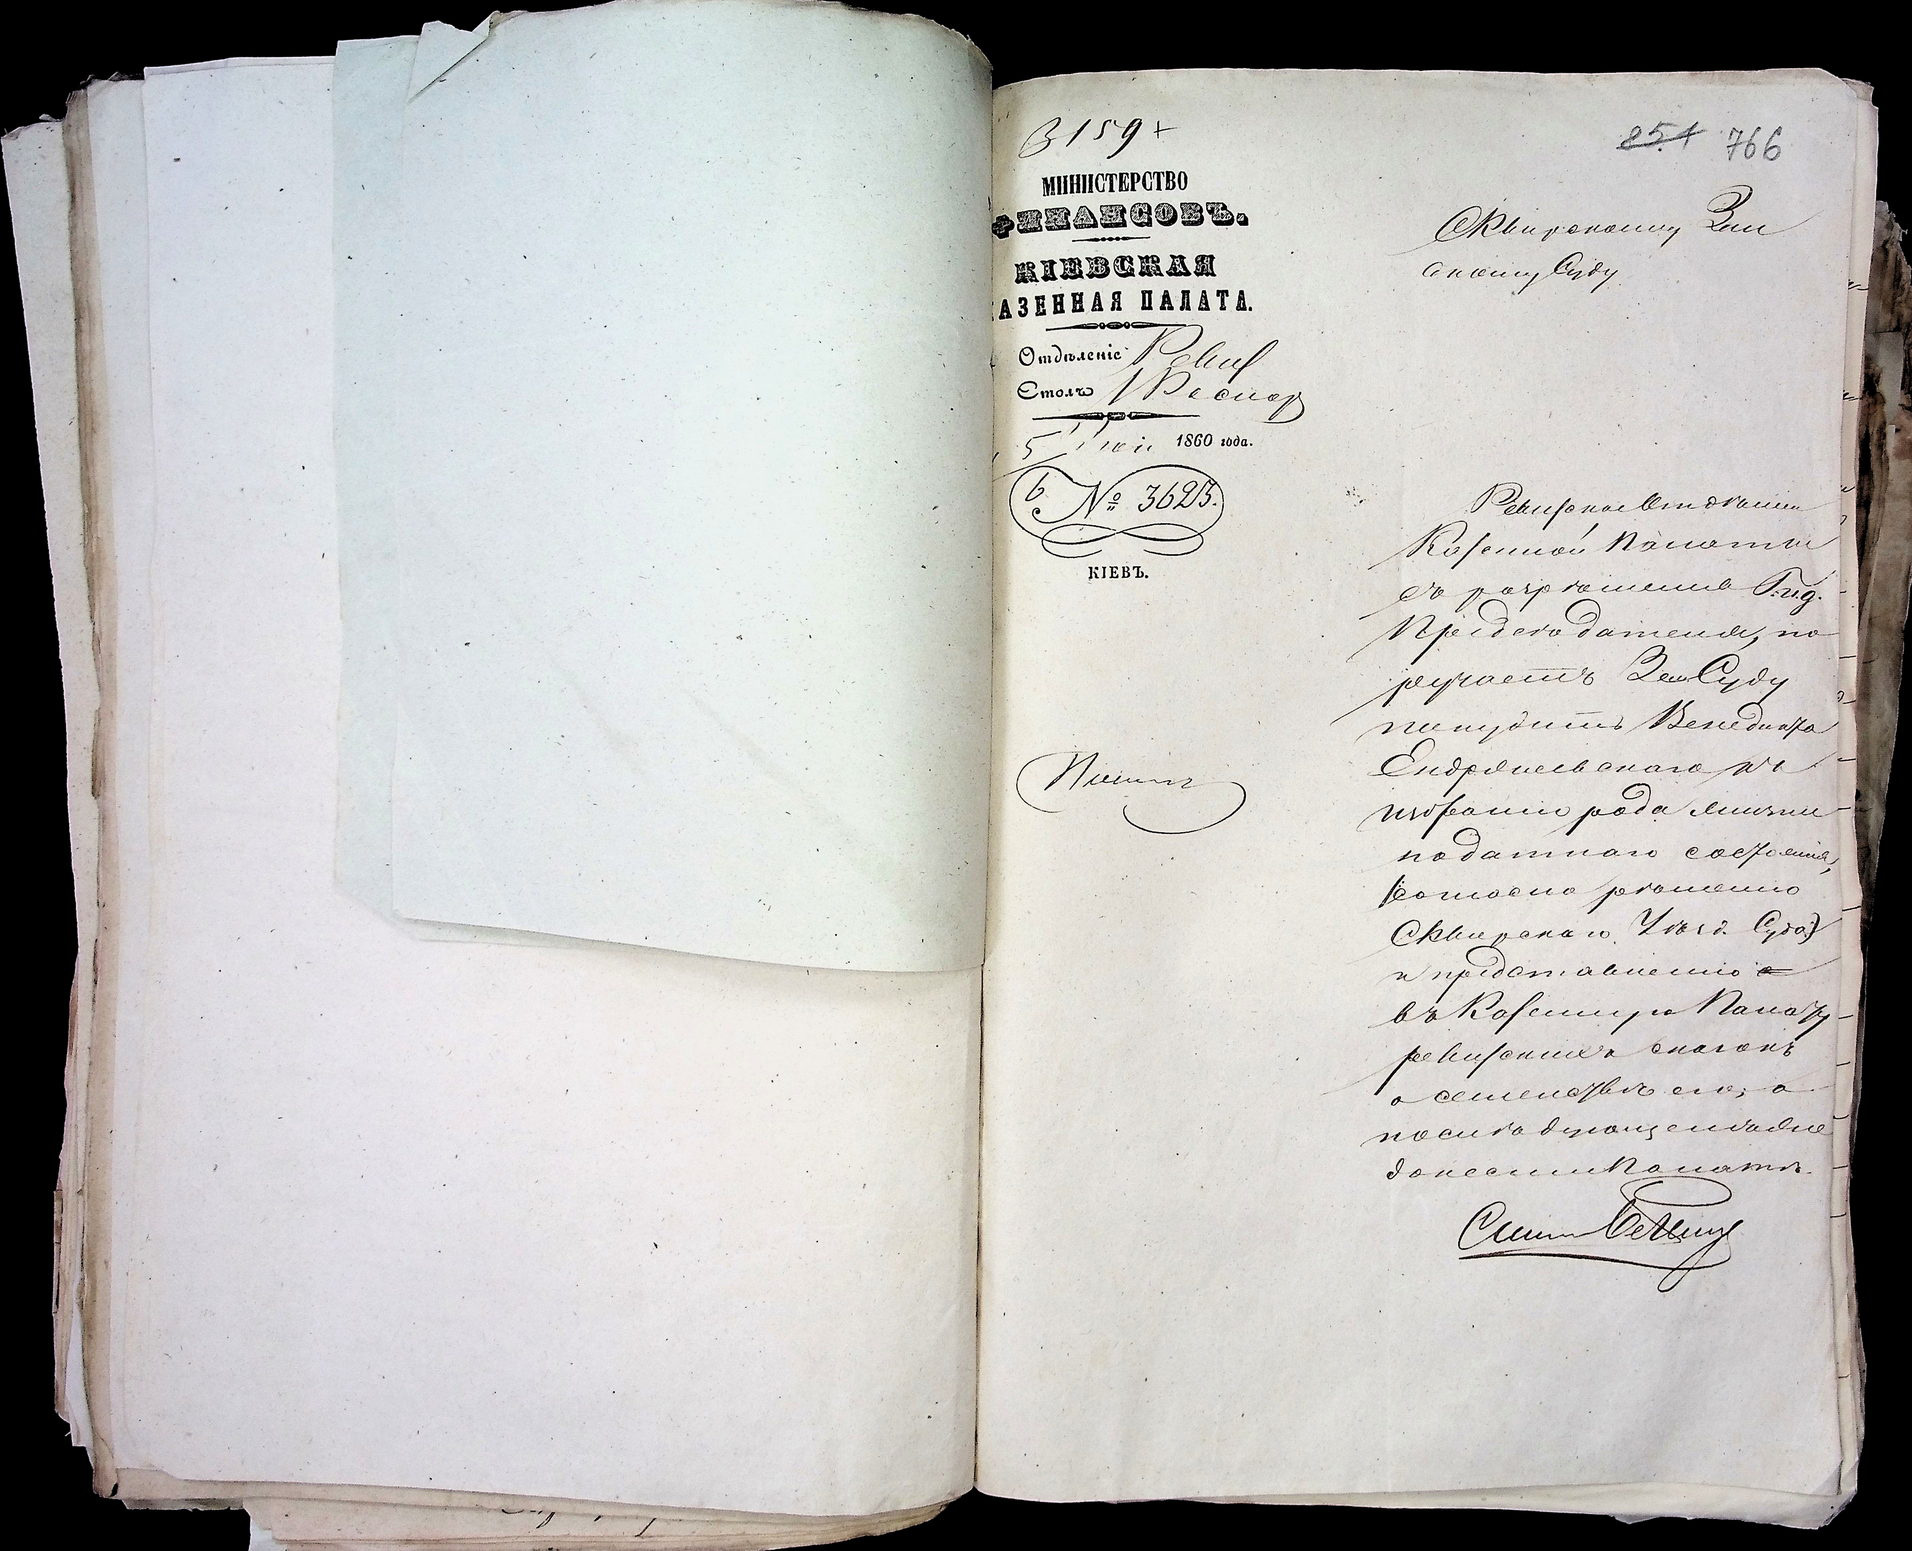 3159+
851 766
МИНИСТЕРСТВО
ФИНАНСОВЪ.
КІЕВСКАЯ
КАЗЕННАЯ ПАЛАТА.
Отдѣленіе Ревиз
Столъ 1
5 1860 года.
№ 3623.
КІЕВЪ.
Сквирскому Зем
скому Суду
Ревизское Отдѣленіе
Казенной Палаты
съ разрѣшенія Г. и. д.
Предсѣдателя, по
ручаетъ Зем Суду
понудить Венедикта
Ендржіевскаго къ
избранію рода жизни
податнаго состоянія,
согласно рѣшенію
Сквирскаго Уѣзд. Суда)
и представленію
въ Казенную Палату
ревизскихъ сказокъ
о семействѣ его, о
послѣдующемъ же
донести Палатѣ.